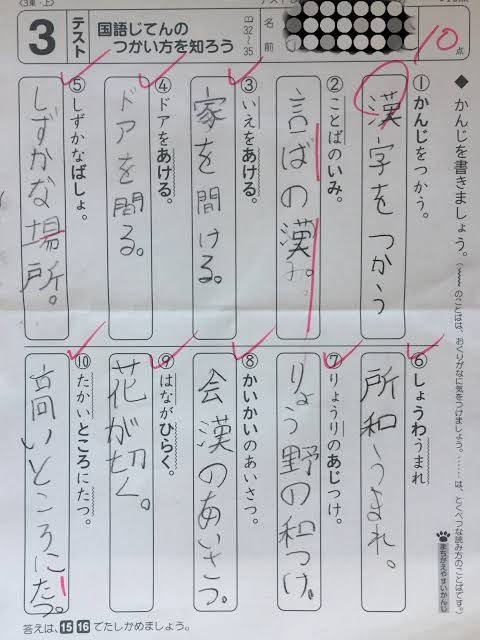 3
テスト
国語じてんの
つかい方を知ろう
32～35
名前
10点
◆ かんじを書きましょう。
(〰のことばは、おくりがなに気をつけましょう。……は、とくべつな読み方のことばです。)
① かんじをつかう。
漢字をつかう
② ことばのいみ。
言ばの漢み。
③ いえをあける。
家を間ける。
④ ドアをあける。
ドアを間る。
⑤ しずかなばしょ。
しずかな場所。
⑥ しょうわうまれ
所和うまれ。
⑦ りょうりのあじつけ。
りょう野の和つけ。
⑧ かいかいのあいさつ。
会漢のあいさつ。
⑨ はながひらく。
花が切く。
⑩ たかいところにたつ。
高いところにたつ。
まちがえやすいかんじ
答えは、15 16 でたしかめましょう。